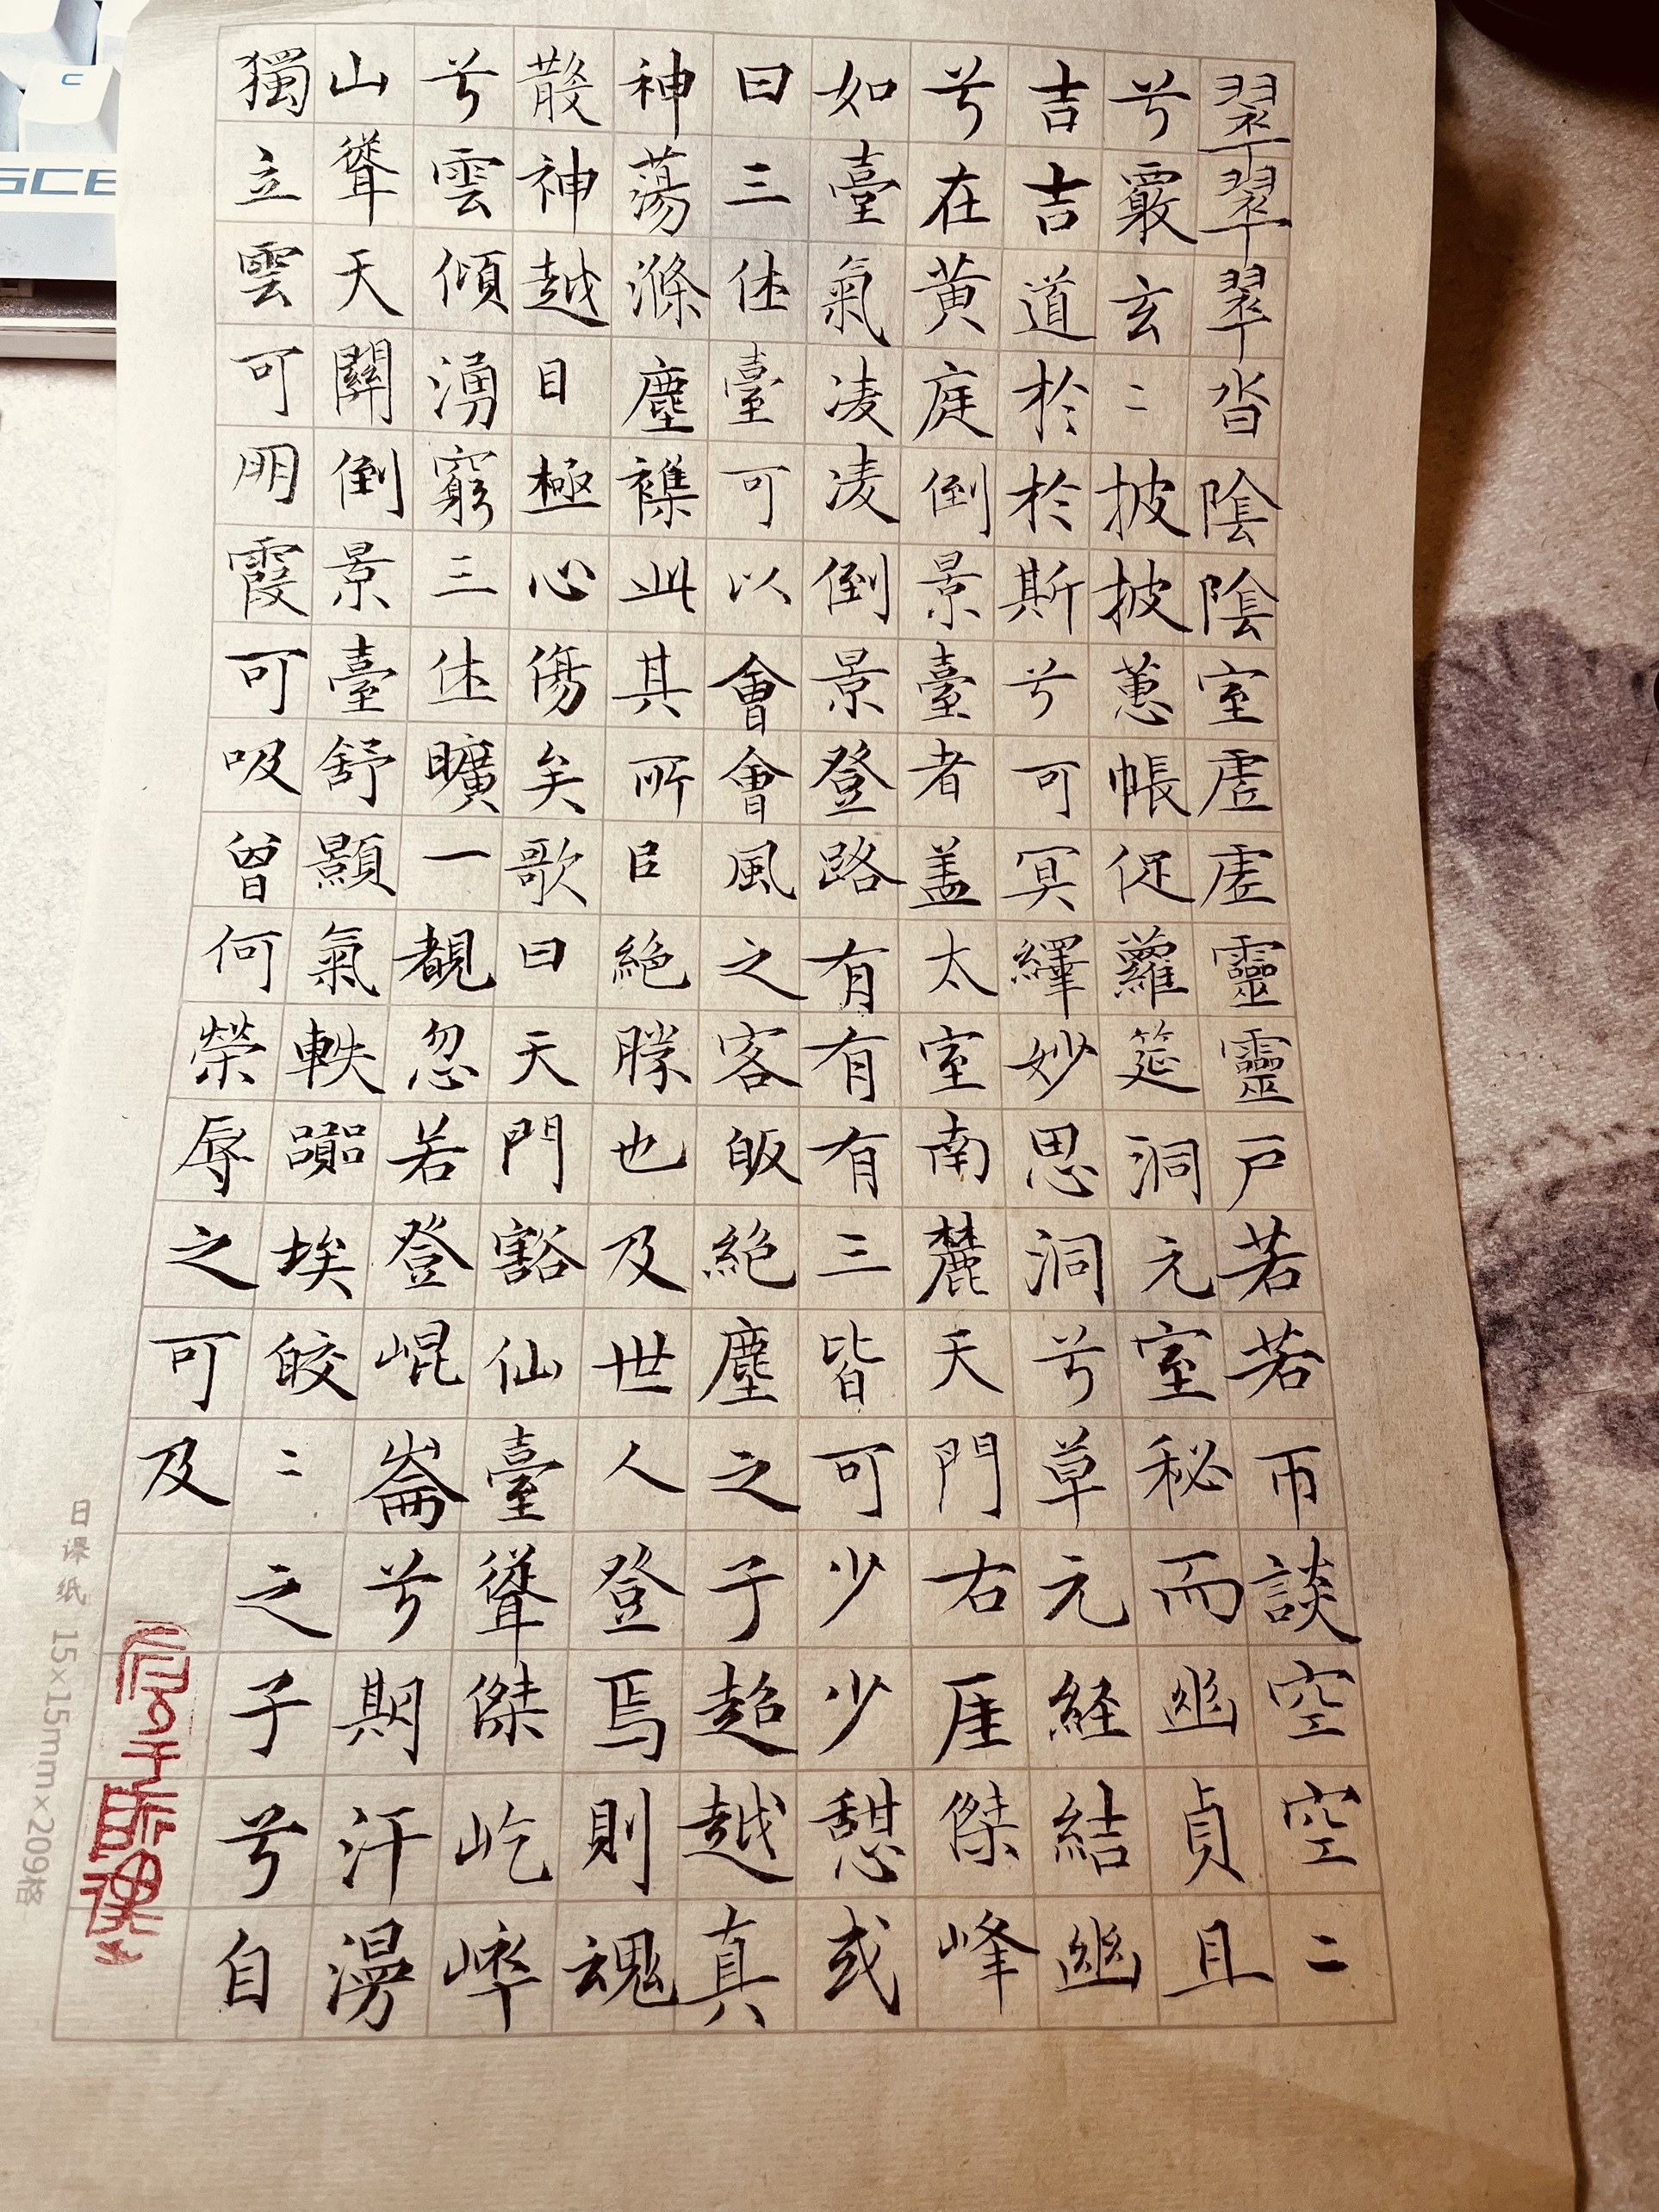 翠翠翠沓陰陰室虗虗靈靈戶若若帀談空空〻
兮嚴玄〻披披蕙帳促蘿筵洞元室秘而幽貞且
吉吉道於於斯兮可冥繹妙思洞兮草元経結幽
兮在黄庭倒景臺者盖太室南麓天門右厓傑峰
如臺氣凌凌倒景登路有有有三皆可少少憇或
曰三休臺可以會會風之客皈絕塵之子超越真
神蕩滌塵襍此其所㠯絕勝也及世人登焉則魂
散神越目極心傷矣歌曰天門豁仙臺聳傑屹崪
兮雲傾湧窮三休曠一覩忽若登崐崙兮期汗漫
山聳天關倒景臺舒顥氣軼躢埃皎〻之子兮自
獨立雲可朙霞可吸曾何榮辱之可及
日课纸 15×15mm×209格
C